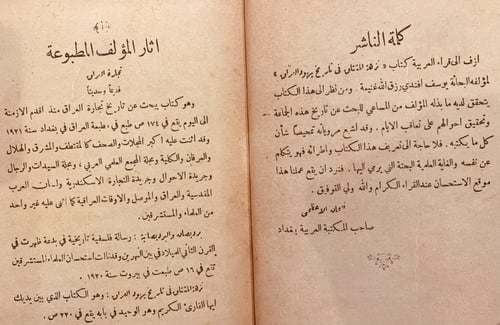 كلمة الناشر
ازف الى قراء العربية كتاب « نزهة المشتاق فى تاريخ يهود العراق »
لمؤلفه البحاثة يوسف افندي رزق الله غنيمة. ومن نظر الى هذا الكتاب
يتحقق لديه ما بذله المؤلف من المساعي للبحث عن تاريخ هذه الجماعة
وتحقيق احوالهم على تعاقب الايام. وقد اشرع مروياته تمحيصاً شأن
كل ما يكتبه. فلا حاجة الى تعريف هذا الكتاب واطرائه فهو يتكلم
عن نفسه والغاية العلمية البحتة التي يرمي اليها. فنرد ان يقع عملنا هذا
موقع الاستحسان عند القراء الكرام والله ولي التوفيق.
نعمان الاعظمي
صاحب المكتبة العربية ببغداد
آثار المؤلف المطبوعة
تجارة العراق
قديماً وحديثاً
وهو كتاب يبحث عن تاريخ تجارة العراق منذ اقدم الازمنة
الى اليوم يقع في ١٧٤ ص طبع في مطبعة العراق في بغداد سنة ١٩٢١
وقد اثنت عليه اكبر المجلات والصحف كالمقتطف والمشرق والهلال
والعرفان والكلية ومجلة المجمع العلمي العربي، ومجلة السيدات والرجال
وجريدة الاحوال وجريدة التجارة الاسكندرية ولسان العرب
المقدسية والعراق والموصل والاوقات العراقية كما اثنى عليه غير واحد
من العلماء والمستشرقين.
برديصان والبرديصانية : رسالة فلسفية تاريخية في بدعة ظهرت في
القرن الثاني للميلاد في بين النهرين وقد نالت استحسان العلماء المستشرقين
تقع في ١٦ ص طبعت في بيروت سنة ١٩٢٠.
نزهة المشتاق فى تاريخ يهود العراق : وهو الكتاب الذي بين يديك
ايها القارئ الكريم وهو الوحيد في بابه يقع في ٢٣٠ ص.